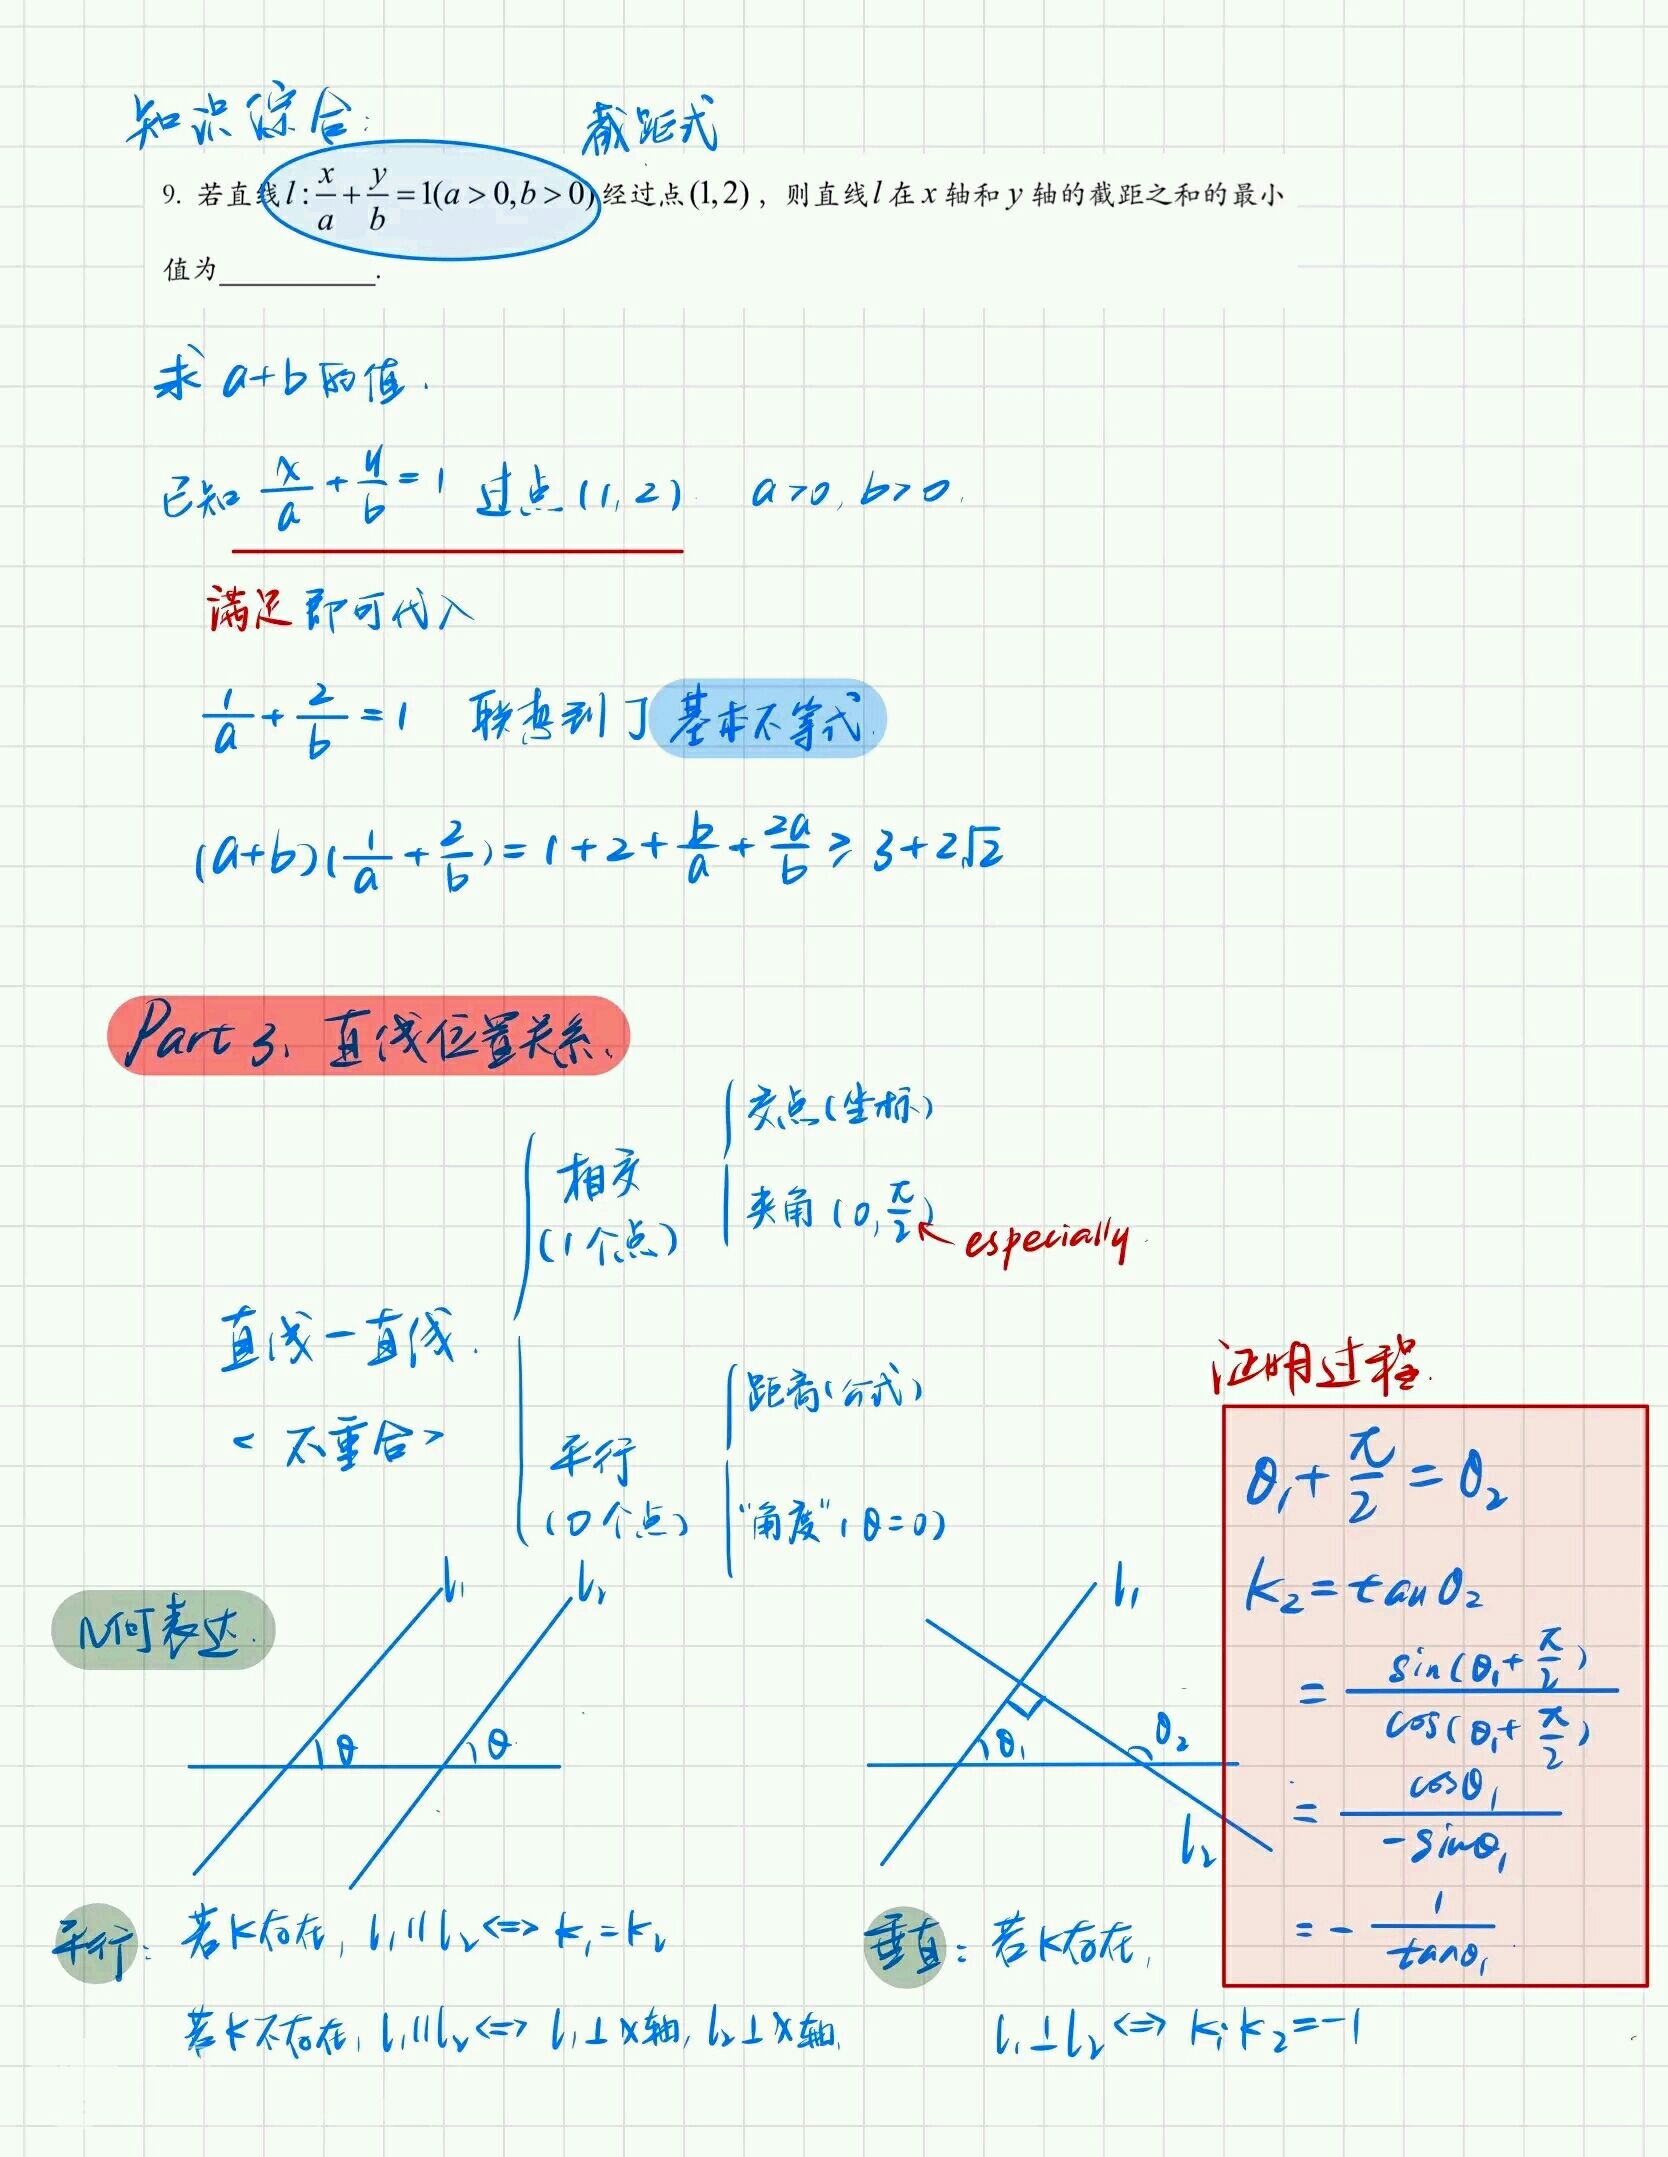 知识综合:
截距式
9. 若直线 l : x/a + y/b = 1(a > 0, b > 0) 经过点 (1, 2) ，则直线 l 在 x 轴和 y 轴的截距之和的最小
值为__________.
求 a+b 的值.
已知 x/a + y/b = 1 过点 (1, 2) a>0, b>0.
满足即可代入
1/a + 2/b = 1 联想到了基本不等式.
(a+b)(1/a + 2/b) = 1+2+ b/a + 2a/b ≥ 3+2√2
Part 3. 直线位置关系.
直线-直线.
<不重合>
相交
(1个点)
交点(坐标)
夹角 (0, π/2)
especially.
平行
(0个点)
距离(公式)
"角度" (θ=0)
几何表达.
l₁ l₂
θ θ
l₁
θ₁ θ₂
l₂
证明过程.
θ₁ + π/2 = θ₂
k₂ = tanθ₂
= sin(θ₁+ π/2) / cos(θ₁+ π/2)
= cosθ₁ / -sinθ₁
= - 1/tanθ₁
平行: 若k存在, l₁∥l₂ <=> k₁=k₂
若k不存在, l₁∥l₂ <=> l₁⊥x轴, l₂⊥x轴.
垂直: 若k存在,
l₁⊥l₂ <=> k₁·k₂=-1